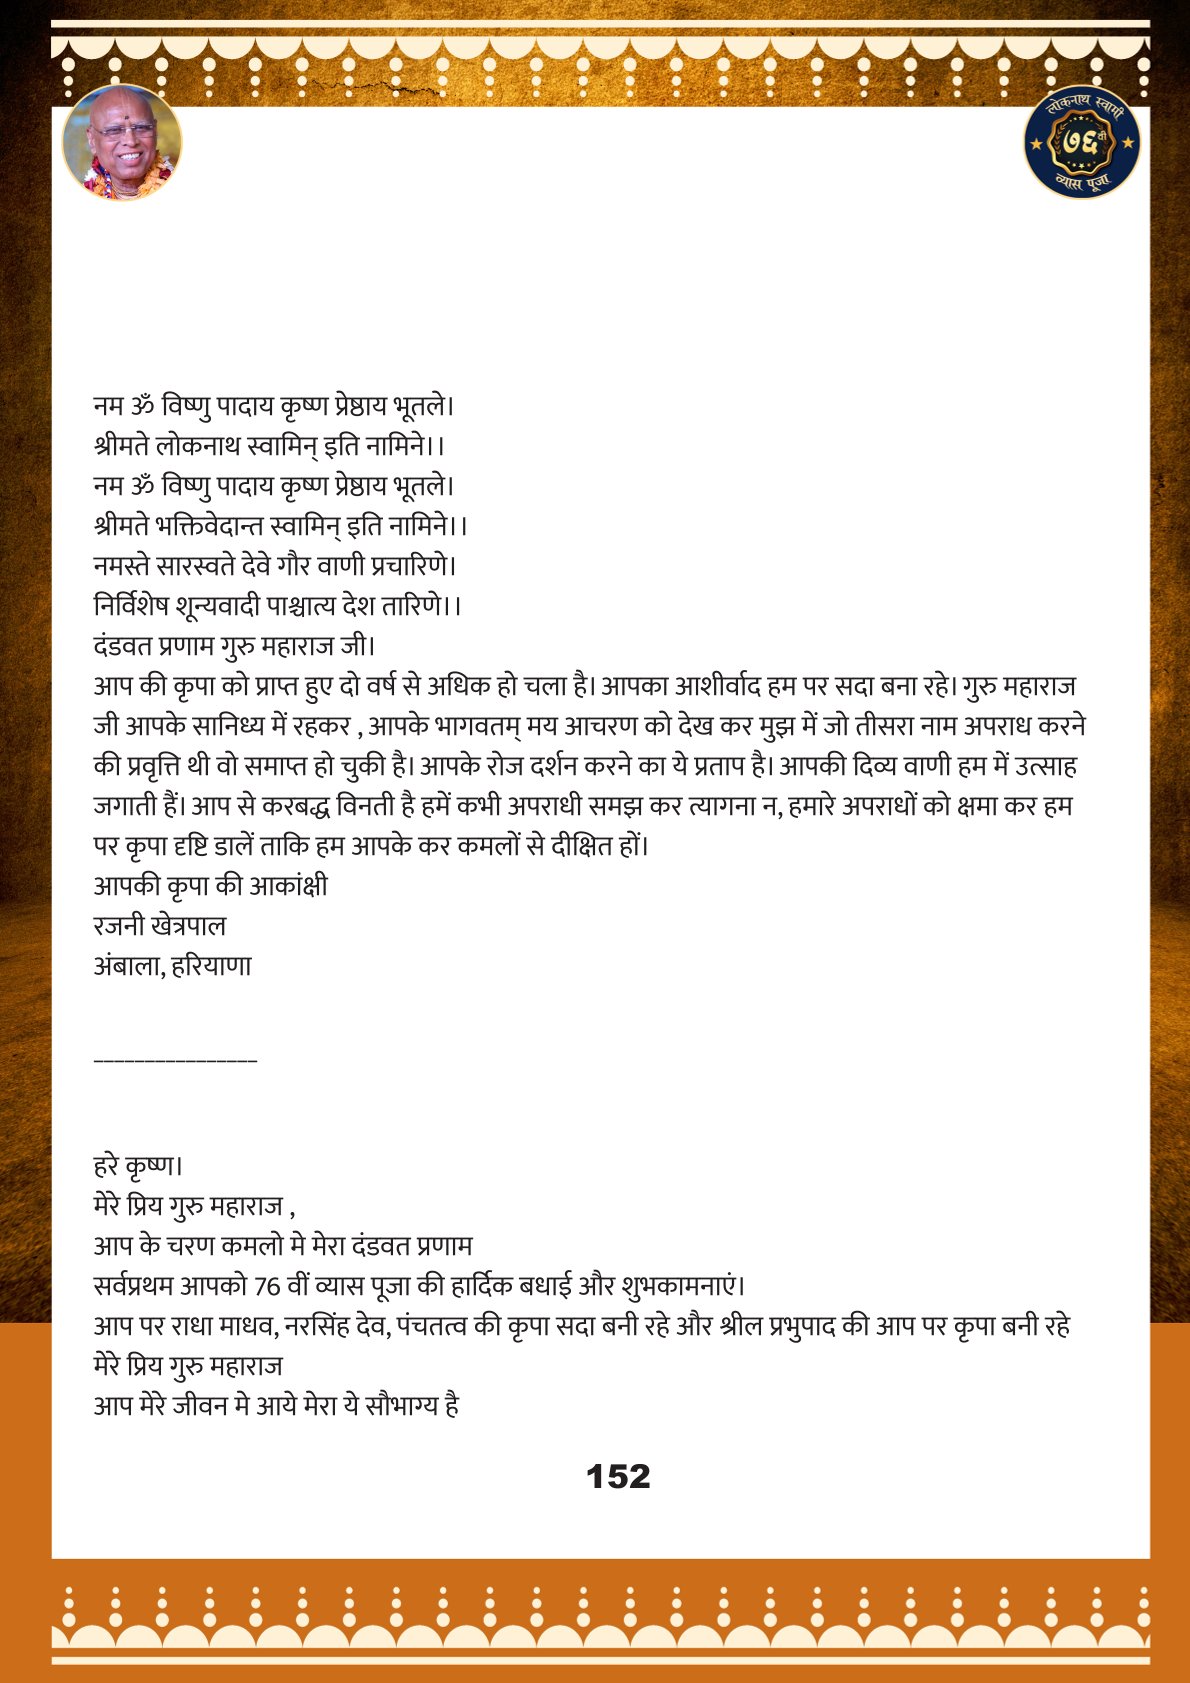 लोकनाथ स्वामी
७६वी
व्यास पूजा
नम ॐ विष्णु पादाय कृष्ण प्रेष्ठाय भूतले।
श्रीमते लोकनाथ स्वामिन् इति नामिने।।
नम ॐ विष्णु पादाय कृष्ण प्रेष्ठाय भूतले।
श्रीमते भक्तिवेदान्त स्वामिन् इति नामिने।।
नमस्ते सारस्वते देवे गौर वाणी प्रचारिणे।
निर्विशेष शून्यवादी पाश्चात्य देश तारिणे।।
दंडवत प्रणाम गुरु महाराज जी।
आप की कृपा को प्राप्त हुए दो वर्ष से अधिक हो चला है। आपका आशीर्वाद हम पर सदा बना रहे। गुरु महाराज
जी आपके सानिध्य में रहकर , आपके भागवतम् मय आचरण को देख कर मुझ में जो तीसरा नाम अपराध करने
की प्रवृत्ति थी वो समाप्त हो चुकी है। आपके रोज दर्शन करने का ये प्रताप है। आपकी दिव्य वाणी हम में उत्साह
जगाती हैं। आप से करबद्ध विनती है हमें कभी अपराधी समझ कर त्यागना न, हमारे अपराधों को क्षमा कर हम
पर कृपा दृष्टि डालें ताकि हम आपके कर कमलों से दीक्षित हों।
आपकी कृपा की आकांक्षी
रजनी खेत्रपाल
अंबाला, हरियाणा
________________
हरे कृष्ण।
मेरे प्रिय गुरु महाराज ,
आप के चरण कमलो मे मेरा दंडवत प्रणाम
सर्वप्रथम आपको 76 वीं व्यास पूजा की हार्दिक बधाई और शुभकामनाएं।
आप पर राधा माधव, नरसिंह देव, पंचतत्व की कृपा सदा बनी रहे और श्रील प्रभुपाद की आप पर कृपा बनी रहे
मेरे प्रिय गुरु महाराज
आप मेरे जीवन मे आये मेरा ये सौभाग्य है
152